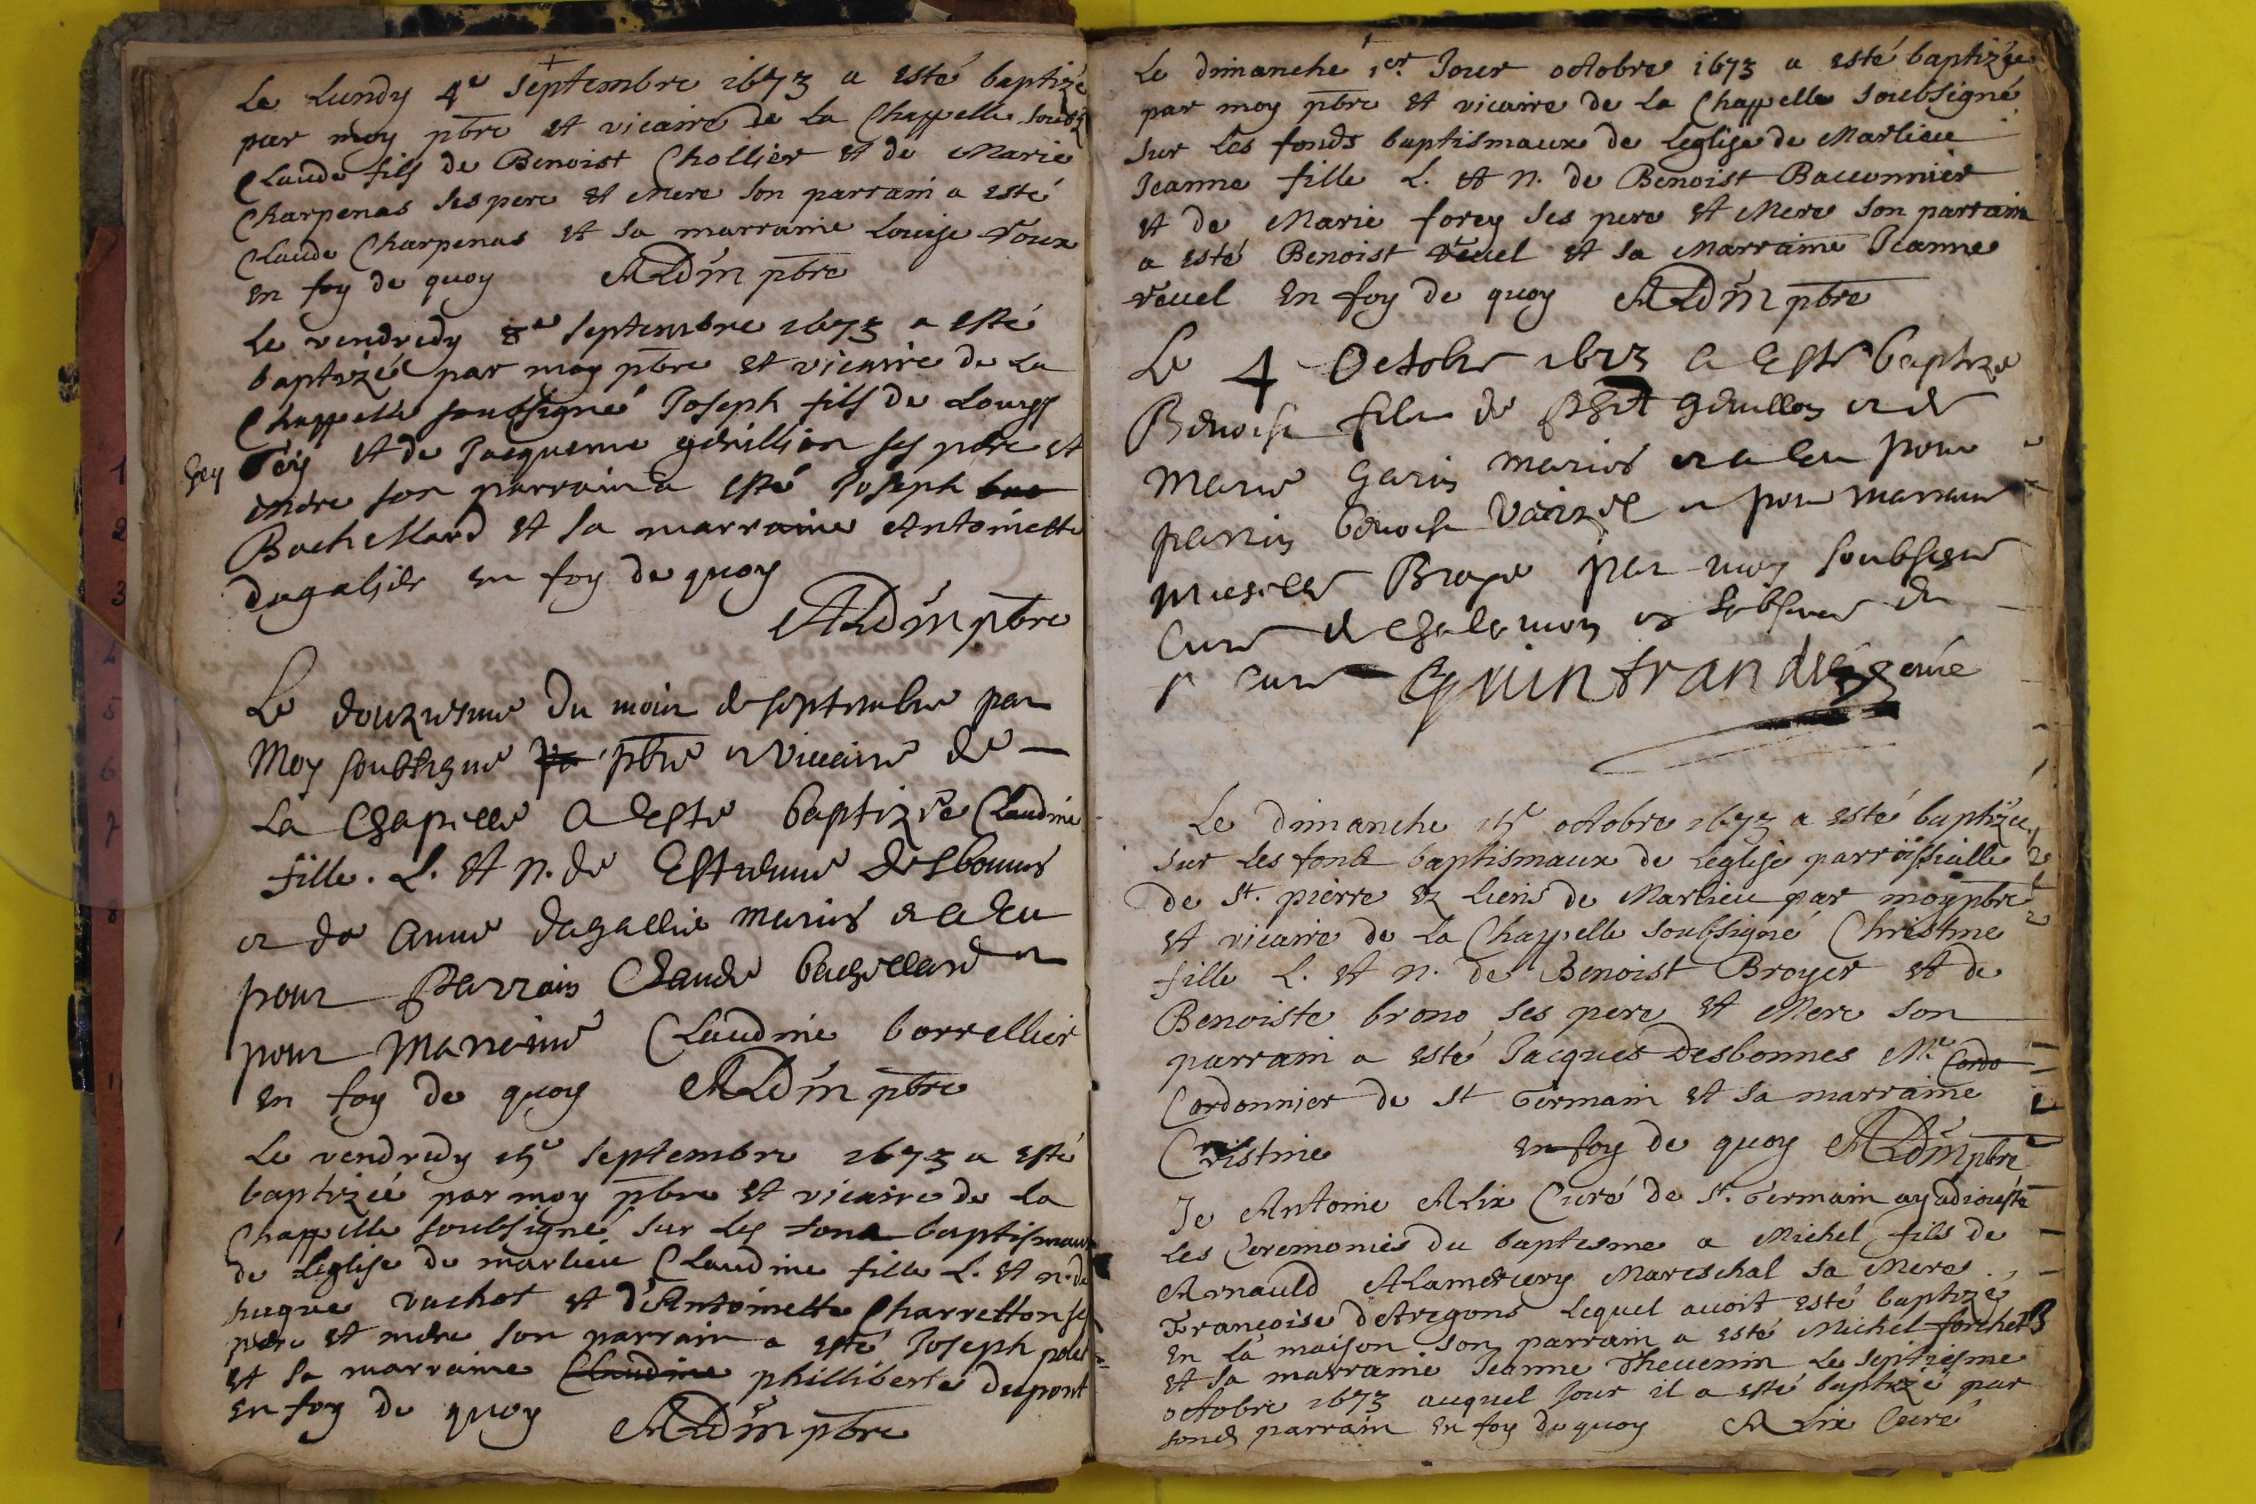 Le Lundy 4e Septembre 1673 a esté baptizé
par moy pbre et vicaire de la Chappelle
Claude fils de Benoist Chollier et de Marie
Charpenas ses pere et mere son parrain a esté
Claude Charpenas et sa marraine Louise Roux
en foy de quoy pbre
Le vendredy 8e septembre 1673 a esté
baptizé par moy pbre et vicaire de la
Chappelle soubsigné Joseph fils de Louys
et de Jacqueme genillion ses pere et
mere son parrain a esté Joseph
Bachellard et sa marraine Antoinette
dagalier en foy de quoy
pbre
Le douziesme du mois de septembre par
Moy soubsigné pbre et vicaire de
La Chapelle a esté baptizée Claudine
fille. L. et n. de Estienne desbonnes
et de anne dagallie mariés et a eu
pour parrain Claude bachellard et
pour Marraine Claudine borrellier
en foy de quoy pbre
Le vendredy 15e septembre 1673 a esté
baptizée par moy pbre et vicaire de la
Chappelle soubsigné sur les fonts baptismaux
de Leglise de marlieu Claudine fille L. et n. de
hugue vachot et d'Antoinette Charretton ses
pere et mere son parrain a esté Joseph
et sa marraine Claudine philliberte dupont
en foy de quoy pbre
Le dimanche 1er Jour octobre 1673 a esté baptizée
par moy pbre et vicaire de la Chappelle soubsigné
sur les fonds baptismaux de Leglise de Marlieu
Jeanne fille L. et n. de Benoist Bacconnier
et de Marie forey ses pere et Mere son parrain
a esté Benoist revel et sa Marraine Jeanne
revel en foy de quoy pbre
Le 4 Octobre 1673 a esté baptizé
Benoist fils de genillon et de
Marie garin mariés et a eu pour
parrin benoist et pour marraine
par moy soubsigné
Curé de Chalamon et
curé Quintrandiez curé
Le dimanche 15e octobre 1673 a esté baptizée
sur les fonts baptismaux de Leglise parroissialle
de St. pierre ez Liens de Marlieu par moy pbre
et vicaire de la Chappelle soubsigné Christine
fille L. et n. de Benoist Broyer et de
Benoiste brono ses pere et Mere son
parrain a esté Jacques desbonnes Me. Cordo
Cordonnier de st Germain et sa marraine
Cristine en foy de quoy pbre
Je Antoine Alix Curé de St. Germain ay adjousté
les Ceremonies du baptesme a Michel fils de
Arnauld Alamercery Mareschal sa Mere
Françoise detregons lequel avoit esté baptizé
en la maison son parrain a esté Michel forchet
et sa marraine Jeanne Thevenin le septiesme
octobre 1673 auquel jour il a esté baptizé par
parrain en foy de quoy Alix Curé